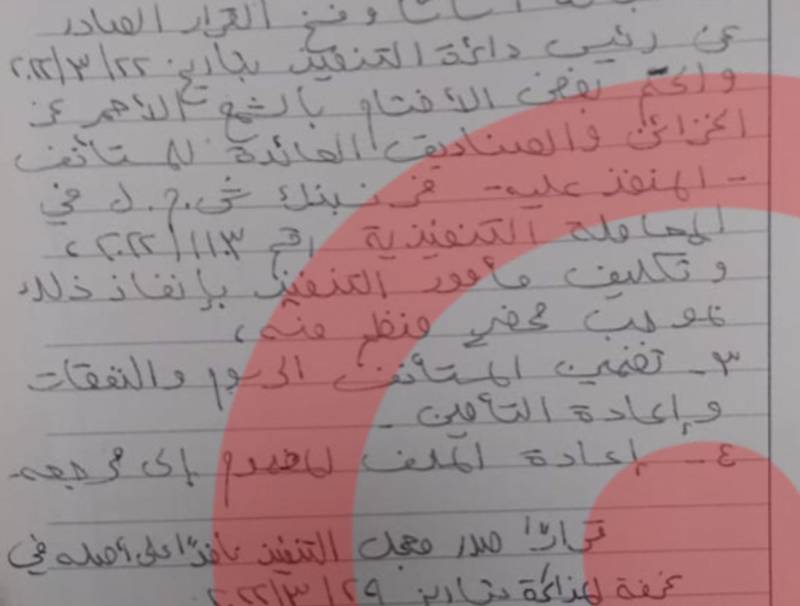 وفسخ القرار الصادر
عن رئيس دائرة التنفيذ بتاريخ ٢٠٢٢/٣/٢٢
والحكم بفض الأختام بالشمع الأحمر عن
الخزائن والصناديق العائدة للمستأنف
- المنفذ عليه - فرنسبنك ش.م.ل في
المعاملة التنفيذية رقم ٢٠٢٢/١١٣،
وتكليف مأمور التنفيذ بإنفاذ ذلك
بموجب محضر منظم منه،
٣- تضمين المستأنف الرسوم والنفقات
وإعادة التأمين.
٤- إعادة الملف المضموم إلى مرجعه.
قرارًا صدر معجل التنفيذ نافذًا على أصله في
غرفة المذاكرة بتاريخ ٢٠٢٢/٣/٢٩